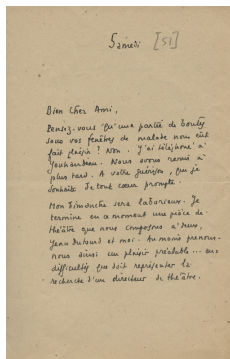 Samedi [51]
Bien Cher Ami,
Pensez-vous qu'une partie de boules
sous vos fenêtres de malade nous eût
fait plaisir ? Non. J'ai téléphoné à
Jouhandeau. Nous avons remis à
plus tard. A votre guérison, que je
souhaite de tout cœur prompte.
Mon Dimanche sera laborieux. Je
termine en ce moment une pièce de
théâtre que nous composons à deux,
Jean Dutourd et moi. Au moins prenons-
nous ainsi un plaisir préalable... aux
difficultés que doit représenter la
recherche d'un directeur de théâtre.